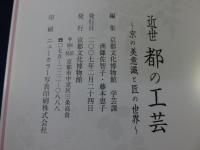 近世 都の工芸
～京の美意識と匠の世界～
編集 京都文化博物館 学芸課
洲鎌佐智子・藤本恵子
発行日 二〇〇七年二月二十四日
発行 京都文化博物館
京都市中京区三条高倉
印刷 ニューカラー写真印刷株式会社